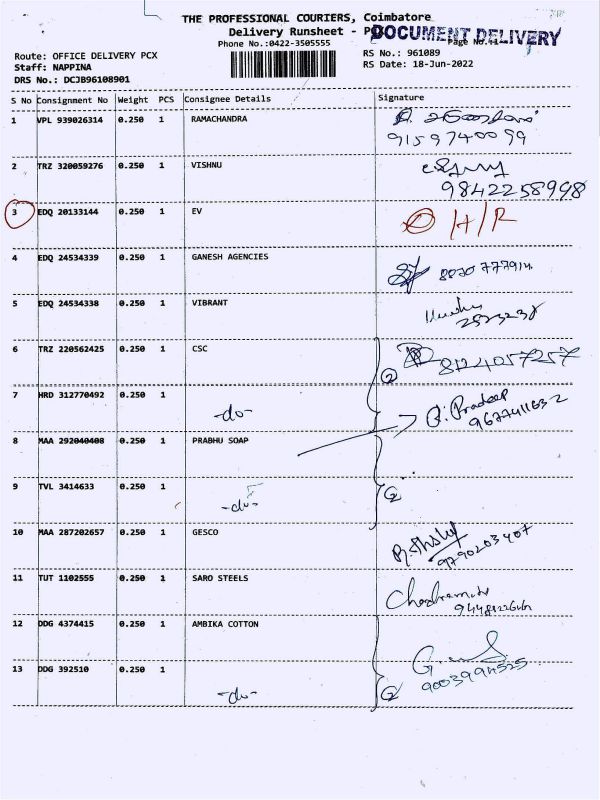 THE PROFESSIONAL COURIERS, Coimbatore
Delivery Runsheet - P
DOCUMENT DELIVERY
Phone No.:0422-3505555
Page No.
Route: OFFICE DELIVERY PCX
RS No.: 961089
Staff: NAPPINA
RS Date: 18-Jun-2022
DRS No.: DCJB96108901
S No Consignment No Weight PCS Consignee Details Signature
1 VPL 939026314 0.250 1 RAMACHANDRA
9159740099
2 TRZ 320059276 0.250 1 VISHNU
9842258998
3 EDQ 20133144 0.250 1 EV H/R
4 EDQ 24534339 0.250 1 GANESH AGENCIES 8870777914
5 EDQ 24534338 0.250 1 VIBRANT
2523238
6 TRZ 220562425 0.250 1 CSC 8124057257
2
7 HRD 312770492 0.250 1 -do- Pradeep
9677411632
8 MAA 292040408 0.250 1 PRABHU SOAP
9 TVL 3414633 0.250 1 -do- 2
10 MAA 287202657 0.250 1 GESCO
9790203407
11 TUT 1102555 0.250 1 SARO STEELS
12 DDG 4374415 0.250 1 AMBIKA COTTON
9003994525
13 DDG 392510 0.250 1 -do- 2